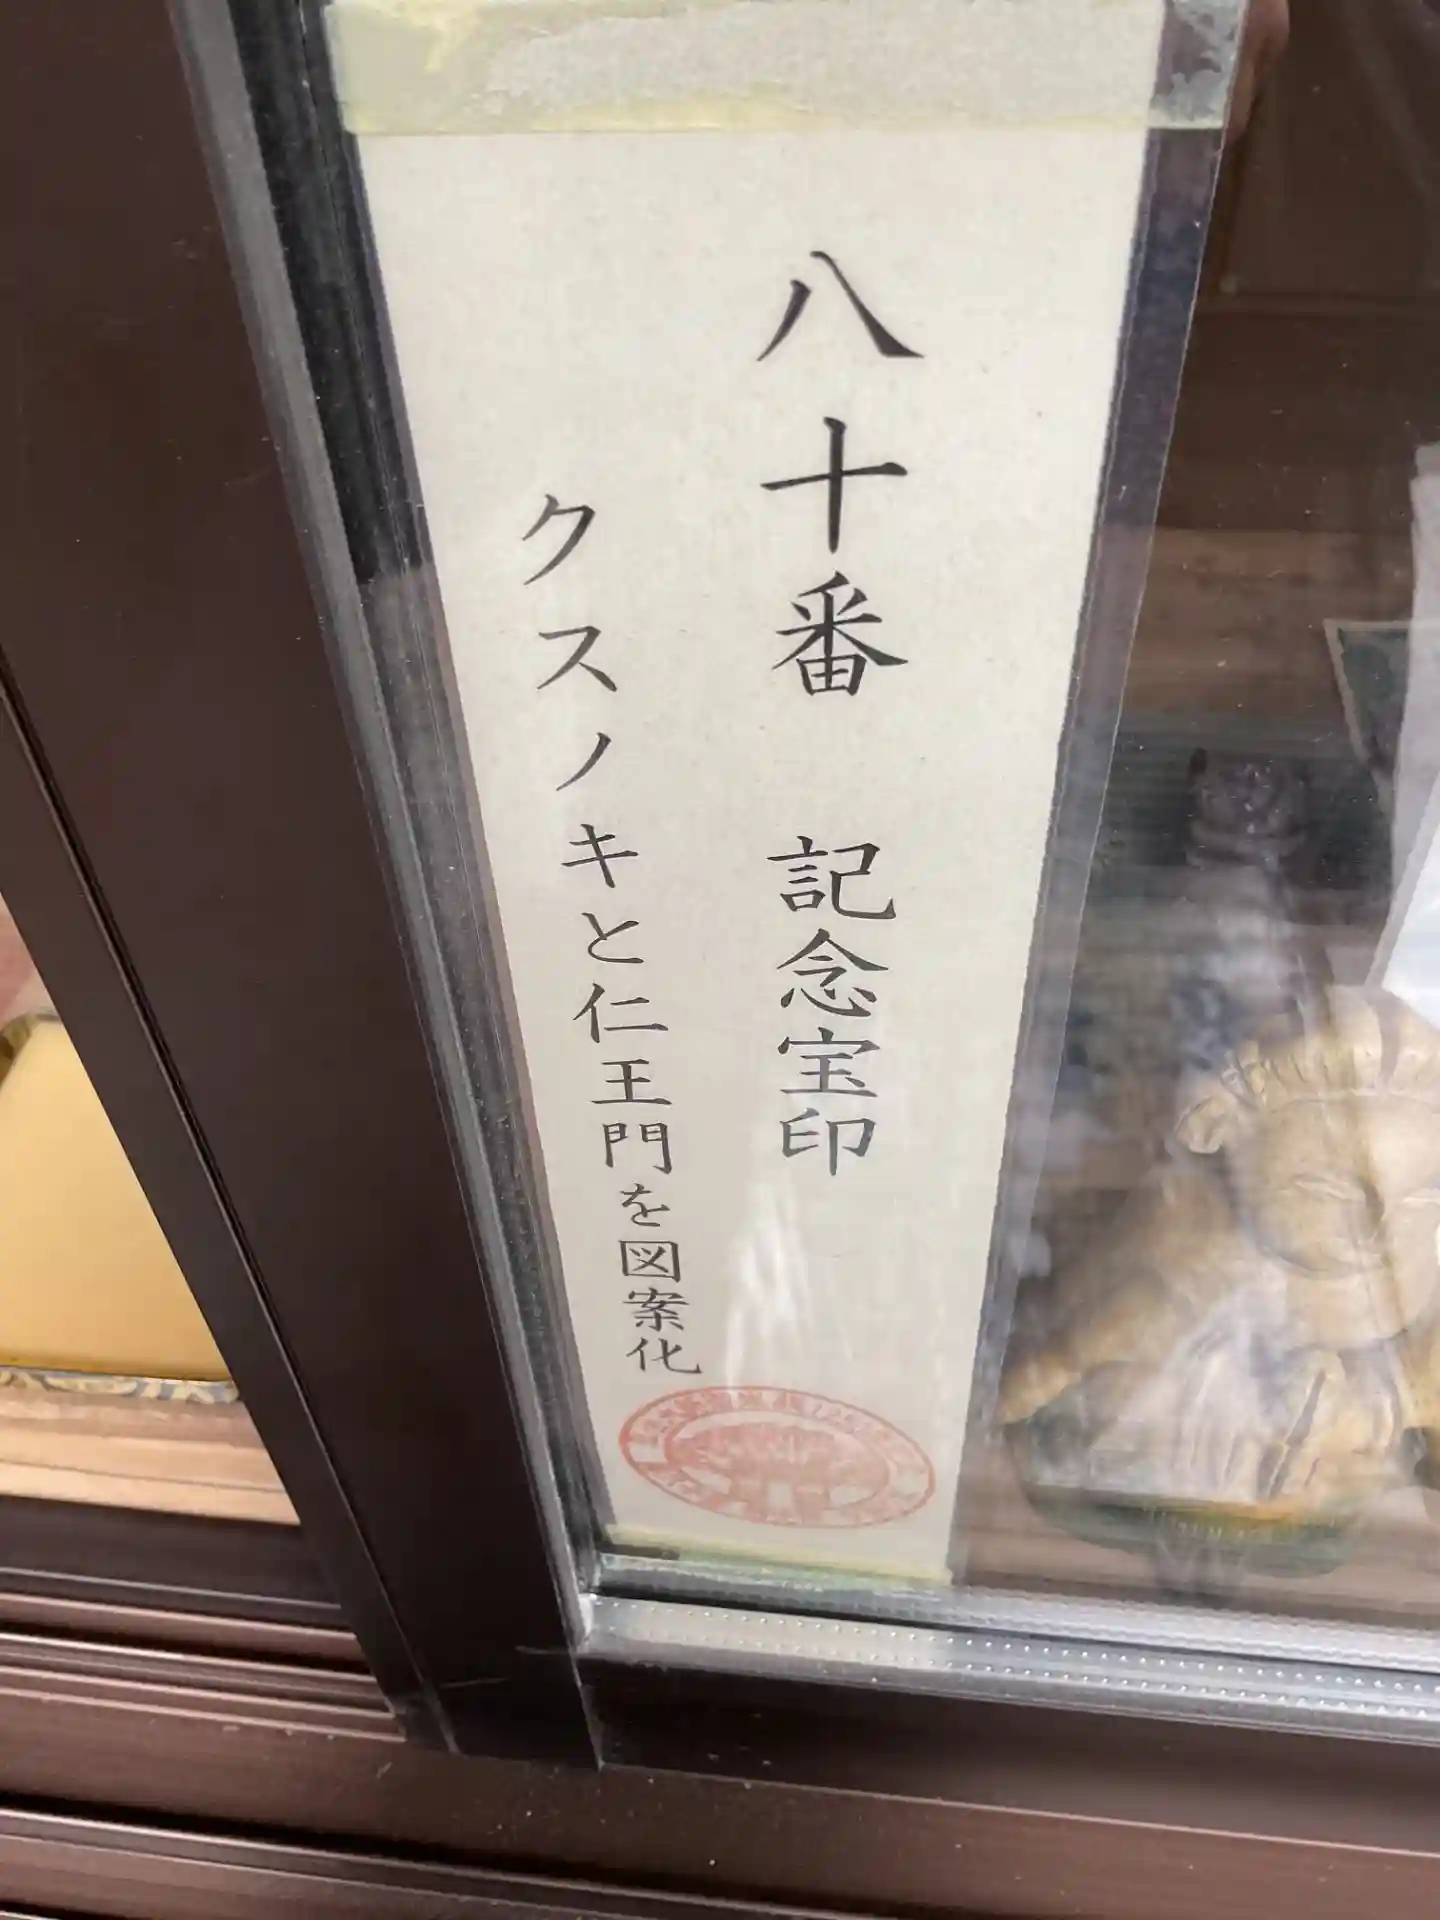 八十番 記念宝印
クスノキと仁王門を図案化